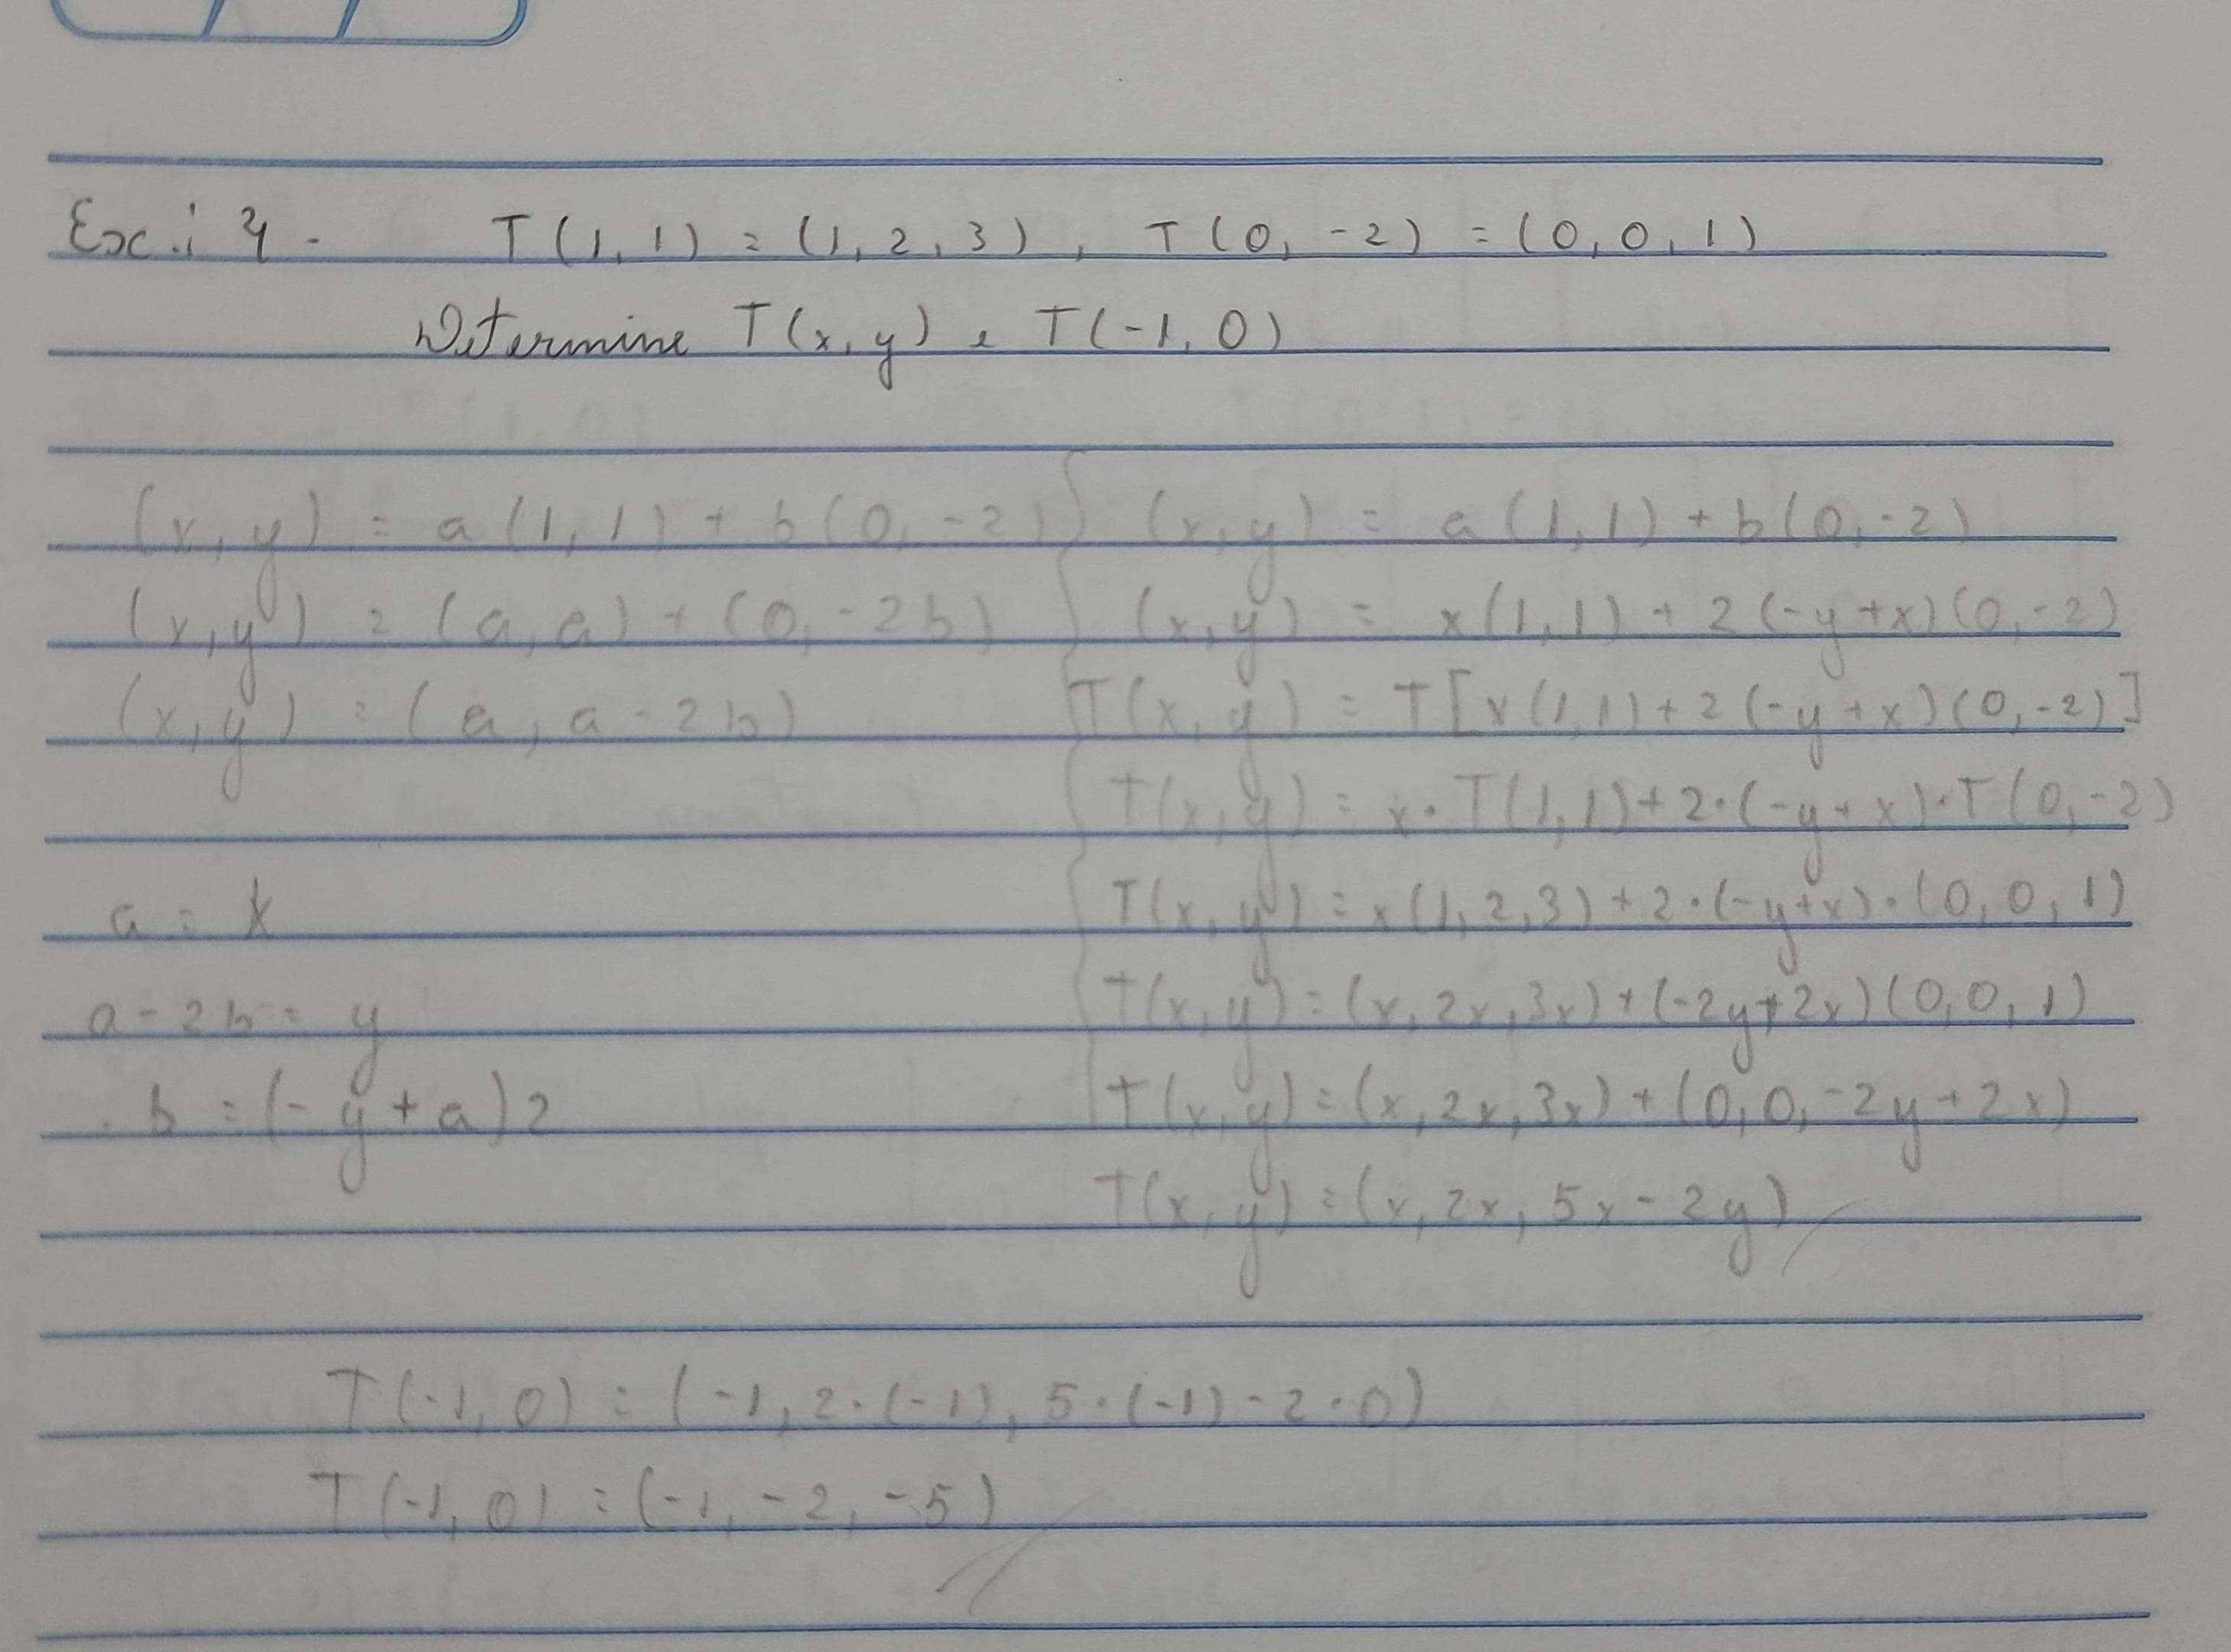 Exc.: 4 - T(1, 1) = (1, 2, 3), T(0, -2) = (0, 0, 1)
Determine T(x, y) e T(-1, 0)
(x, y) = a(1, 1) + b(0, -2)
(x, y) = (a, a) + (0, -2b)
(x, y) = (a, a - 2b)
a = x
a - 2b = y
b = (-y + a)2
(x, y) = a(1, 1) + b(0, -2)
(x, y) = x(1, 1) + 2(-y + x)(0, -2)
T(x, y) = T[x(1, 1) + 2(-y + x)(0, -2)]
T(x, y) = x · T(1, 1) + 2 · (-y + x) · T(0, -2)
T(x, y) = x(1, 2, 3) + 2 · (-y + x) · (0, 0, 1)
T(x, y) = (x, 2x, 3x) + (-2y + 2x)(0, 0, 1)
T(x, y) = (x, 2x, 3x) + (0, 0, -2y + 2x)
T(x, y) = (x, 2x, 5x - 2y)
T(-1, 0) = (-1, 2 · (-1), 5 · (-1) - 2 · 0)
T(-1, 0) = (-1, -2, -5)